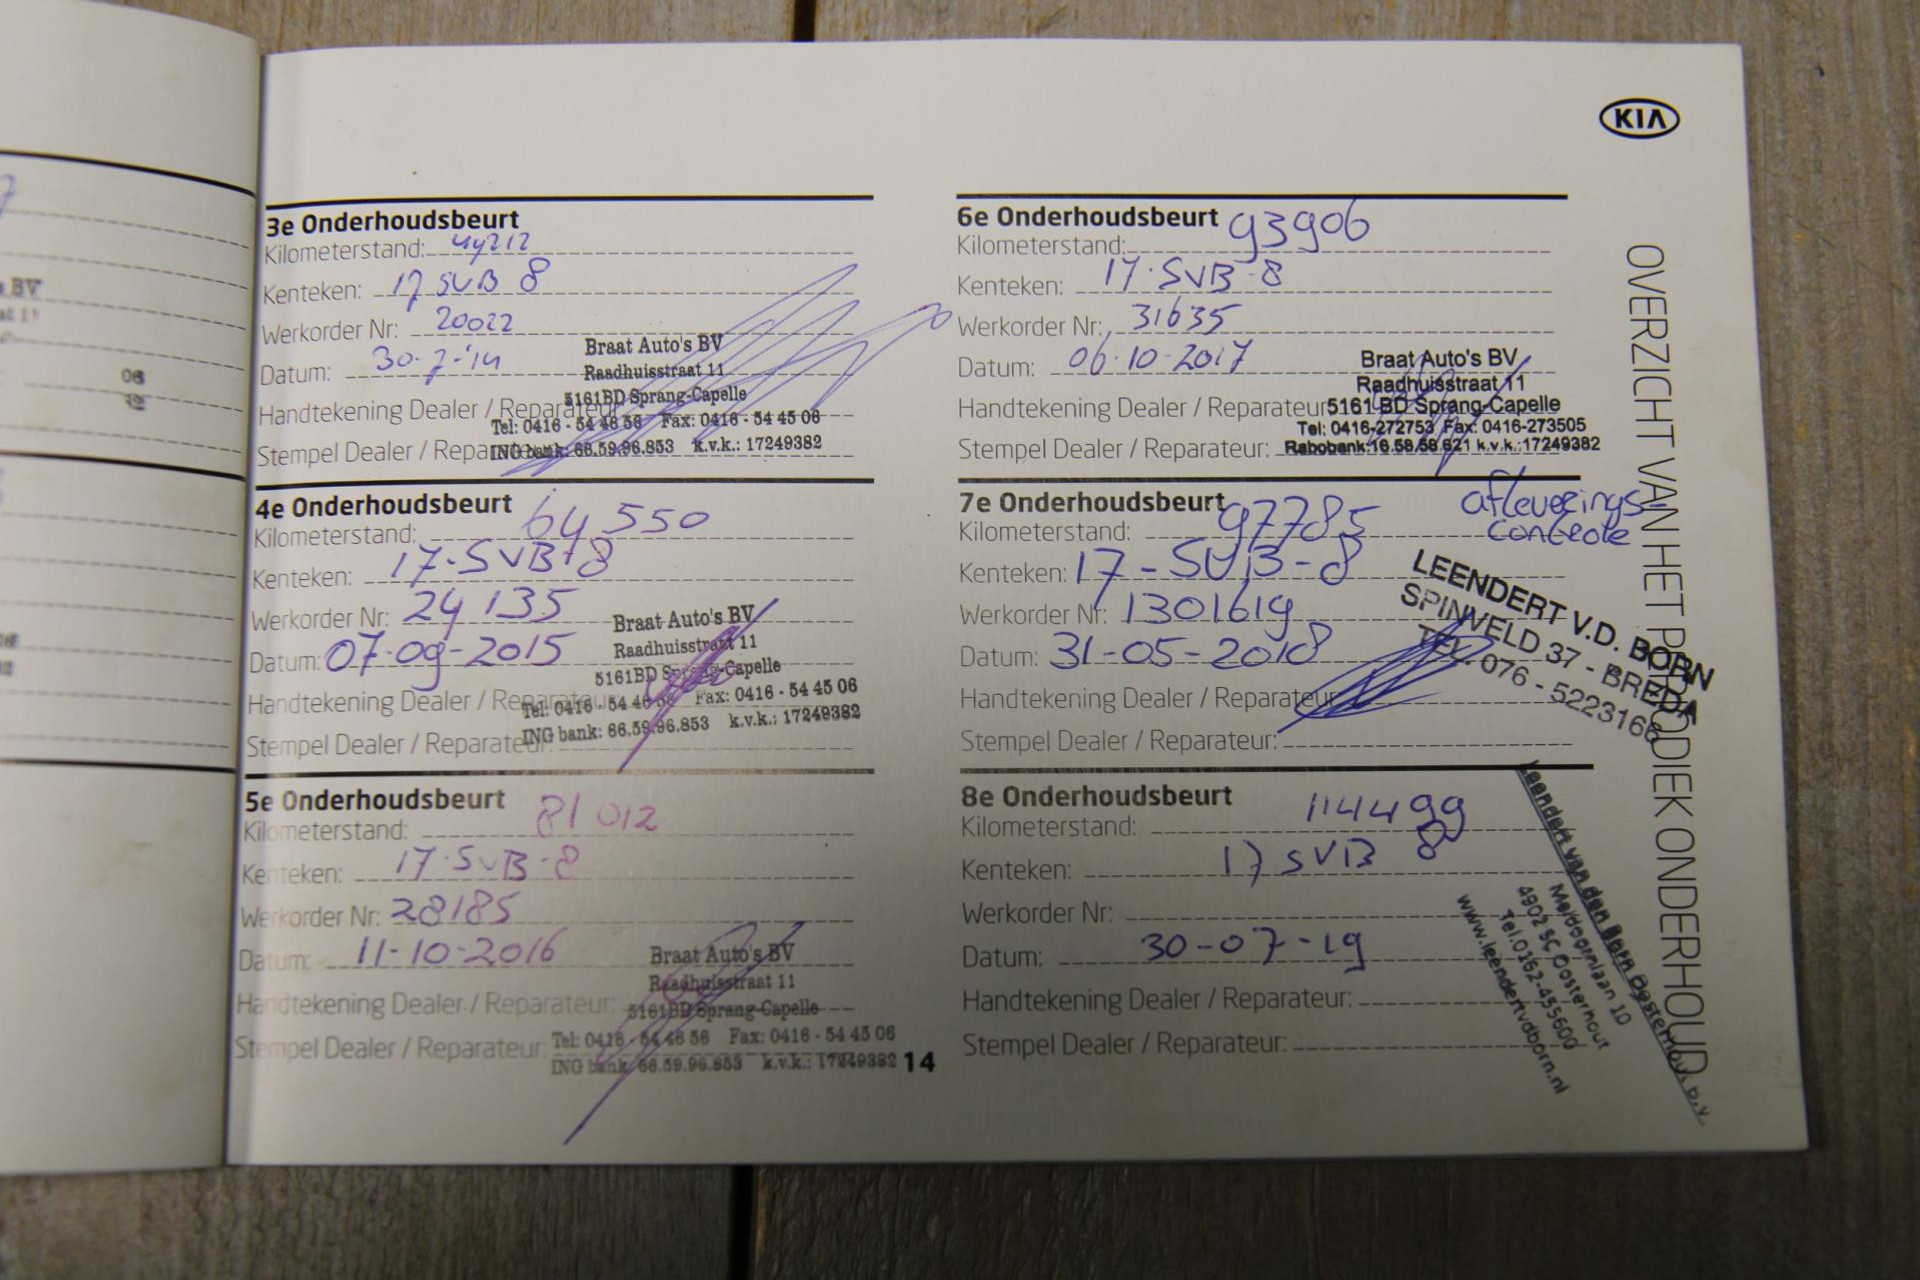 BV
06
KIA
OVERZICHT VAN HET PERIODIEK ONDERHOUD
3e Onderhoudsbeurt
Kilometerstand:
Kenteken: 17 SVB 8
Werkorder Nr: 20022
Datum: 30-7-'14
Handtekening Dealer / Reparateur:
Stempel Dealer / Reparateur:
Braat Auto's BV
Raadhuisstraat 11
5161BD Sprang-Capelle
Tel: 0416 - 54 46 56 Fax: 0416 - 54 45 06
ING bank: 66.59.96.853 k.v.k.: 17249382
4e Onderhoudsbeurt
Kilometerstand: 64 550
Kenteken: 17-SVB-8
Werkorder Nr: 24 135
Datum: 07-09-2015
Handtekening Dealer / Reparateur:
Stempel Dealer / Reparateur:
Braat Auto's BV
Raadhuisstraat 11
5161BD Sprang-Capelle
Tel: 0416 - 54 46 56 Fax: 0416 - 54 45 06
ING bank: 66.59.96.853 k.v.k.: 17249382
5e Onderhoudsbeurt
Kilometerstand: 81 012
Kenteken: 17-SVB-8
Werkorder Nr: 28185
Datum: 11-10-2016
Handtekening Dealer / Reparateur:
Stempel Dealer / Reparateur:
Braat Auto's BV
Raadhuisstraat 11
5161BD Sprang-Capelle
Tel: 0416 - 54 46 56 Fax: 0416 - 54 45 06
ING bank: 66.59.96.853 k.v.k.: 17249382
14
6e Onderhoudsbeurt
Kilometerstand: 93906
Kenteken: 17-SVB-8
Werkorder Nr: 31635
Datum: 06-10-2017
Handtekening Dealer / Reparateur:
Stempel Dealer / Reparateur:
Braat Auto's BV
Raadhuisstraat 11
5161 BD Sprang-Capelle
Tel: 0416-272753 Fax: 0416-273505
Rabobank:16.58.58.621 k.v.k.:17249382
7e Onderhoudsbeurt
Kilometerstand: 97785
afleverings-
controle
Kenteken: 17-SVB-8
Werkorder Nr: 1301619
Datum: 31-05-2018
Handtekening Dealer / Reparateur:
Stempel Dealer / Reparateur:
LEENDERT V.D. BORN
SPINVELD 37 - BREDA
TEL. 076 - 5223166
8e Onderhoudsbeurt
Kilometerstand: 114499
Kenteken: 17 SVB 8
Werkorder Nr:
Datum: 30-07-19
Handtekening Dealer / Reparateur:
Stempel Dealer / Reparateur:
Leendert van den Born Oosterhout b.v.
Meidoornlaan 10
4902 SC Oosterhout
Tel.0162-455600
www.leendertvdborn.nl